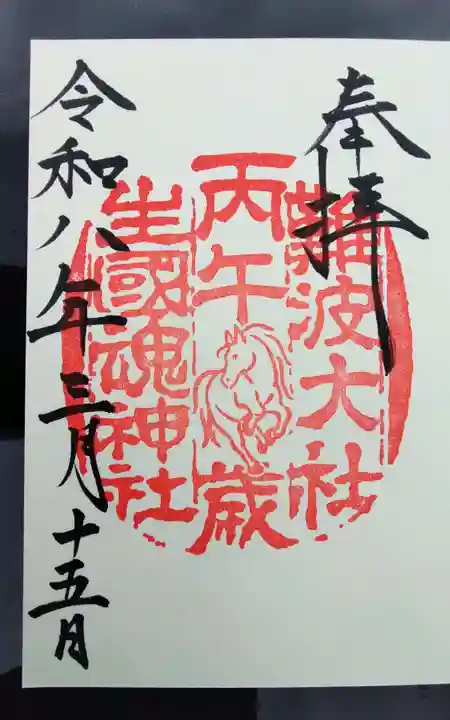 奉拝
難波大社
丙午歳
生國魂神社
令和八年三月十五月